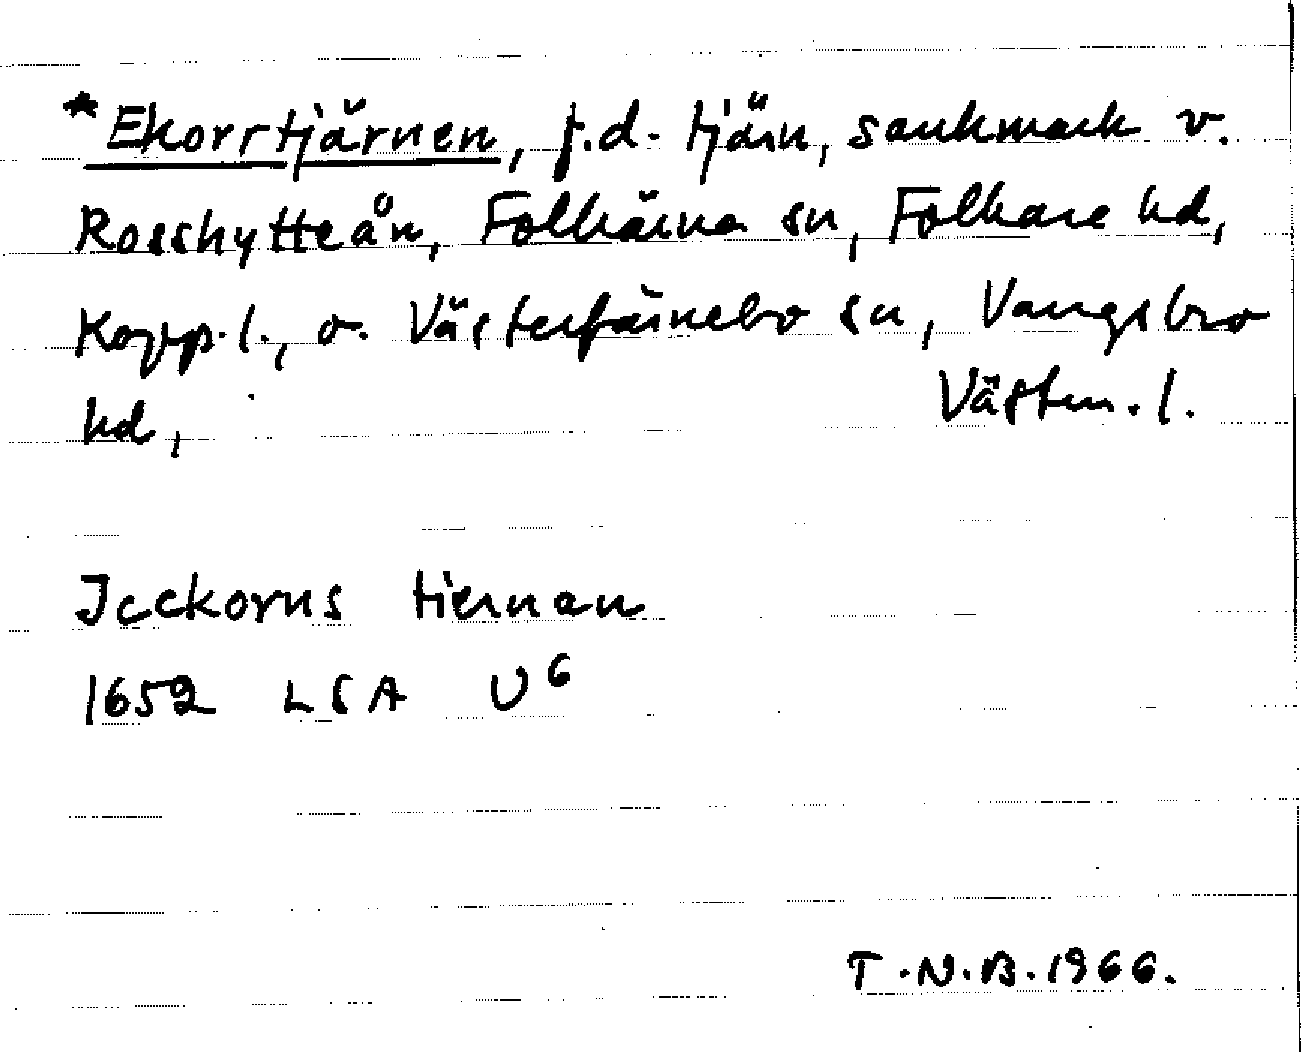 *Ekorrtjärnen, f.d. tjärn, sankmark v.
Rosshytteån, Folkärna sn, Folkare hd,
Kopp. l., o. Västerfärnebo sn, Vangsbro
hd, Västm. l.
Ickorns tiernan
1652 LSA U6
T.N.B. 1966.